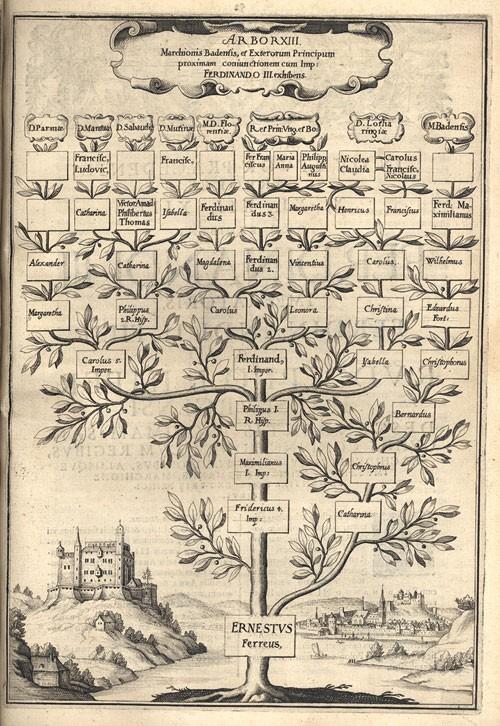 ARBOR XIII.
Marchionis Badensis, et Exterorum Principum
proximam coniunctionem cum Imp:
FERDINANDO III. exhibens.
D. Parmæ
D. Mantuæ
D. Sabaudiæ
D. Mutinæ
M. D. Flo-
rentiæ
R. et Prin: Vng. et Bo:
D. Lotha
ringiæ
M. Badensis
Francisc,
Ludovic,
Francisc,
Fer Fran
ciscus
Maria
Anna
Philipp
Augusti-
nus
Nicolea
Claudia
Carolus
Francisc,
Nicolaus
Catharina
Victor Amad
Philibertus
Thomas
Isabella
Ferdinan
dus
Ferdinan
dus 3.
Margaretha
Henricus
Franciscus
Ferd: Ma-
ximilianus
Alexander
Catharina
Magdalena
Ferdinan
dus 2.
Vincentius
Carolus,
Wilhelmus
Margaretha
Philippus
2. R. Hisp.
Carolus
Leonora
Christina
Eduardus
Fort:
Carolus 5.
Imper.
Ferdinand,
I. Imper.
Isabella
Christophorus
Philippus I.
R. Hisp.
Bernardus
Maximilianus
I. Imp:
Christophrus
Fridericus 4.
Imp:
Catharina
ERNESTVS
Ferreus,